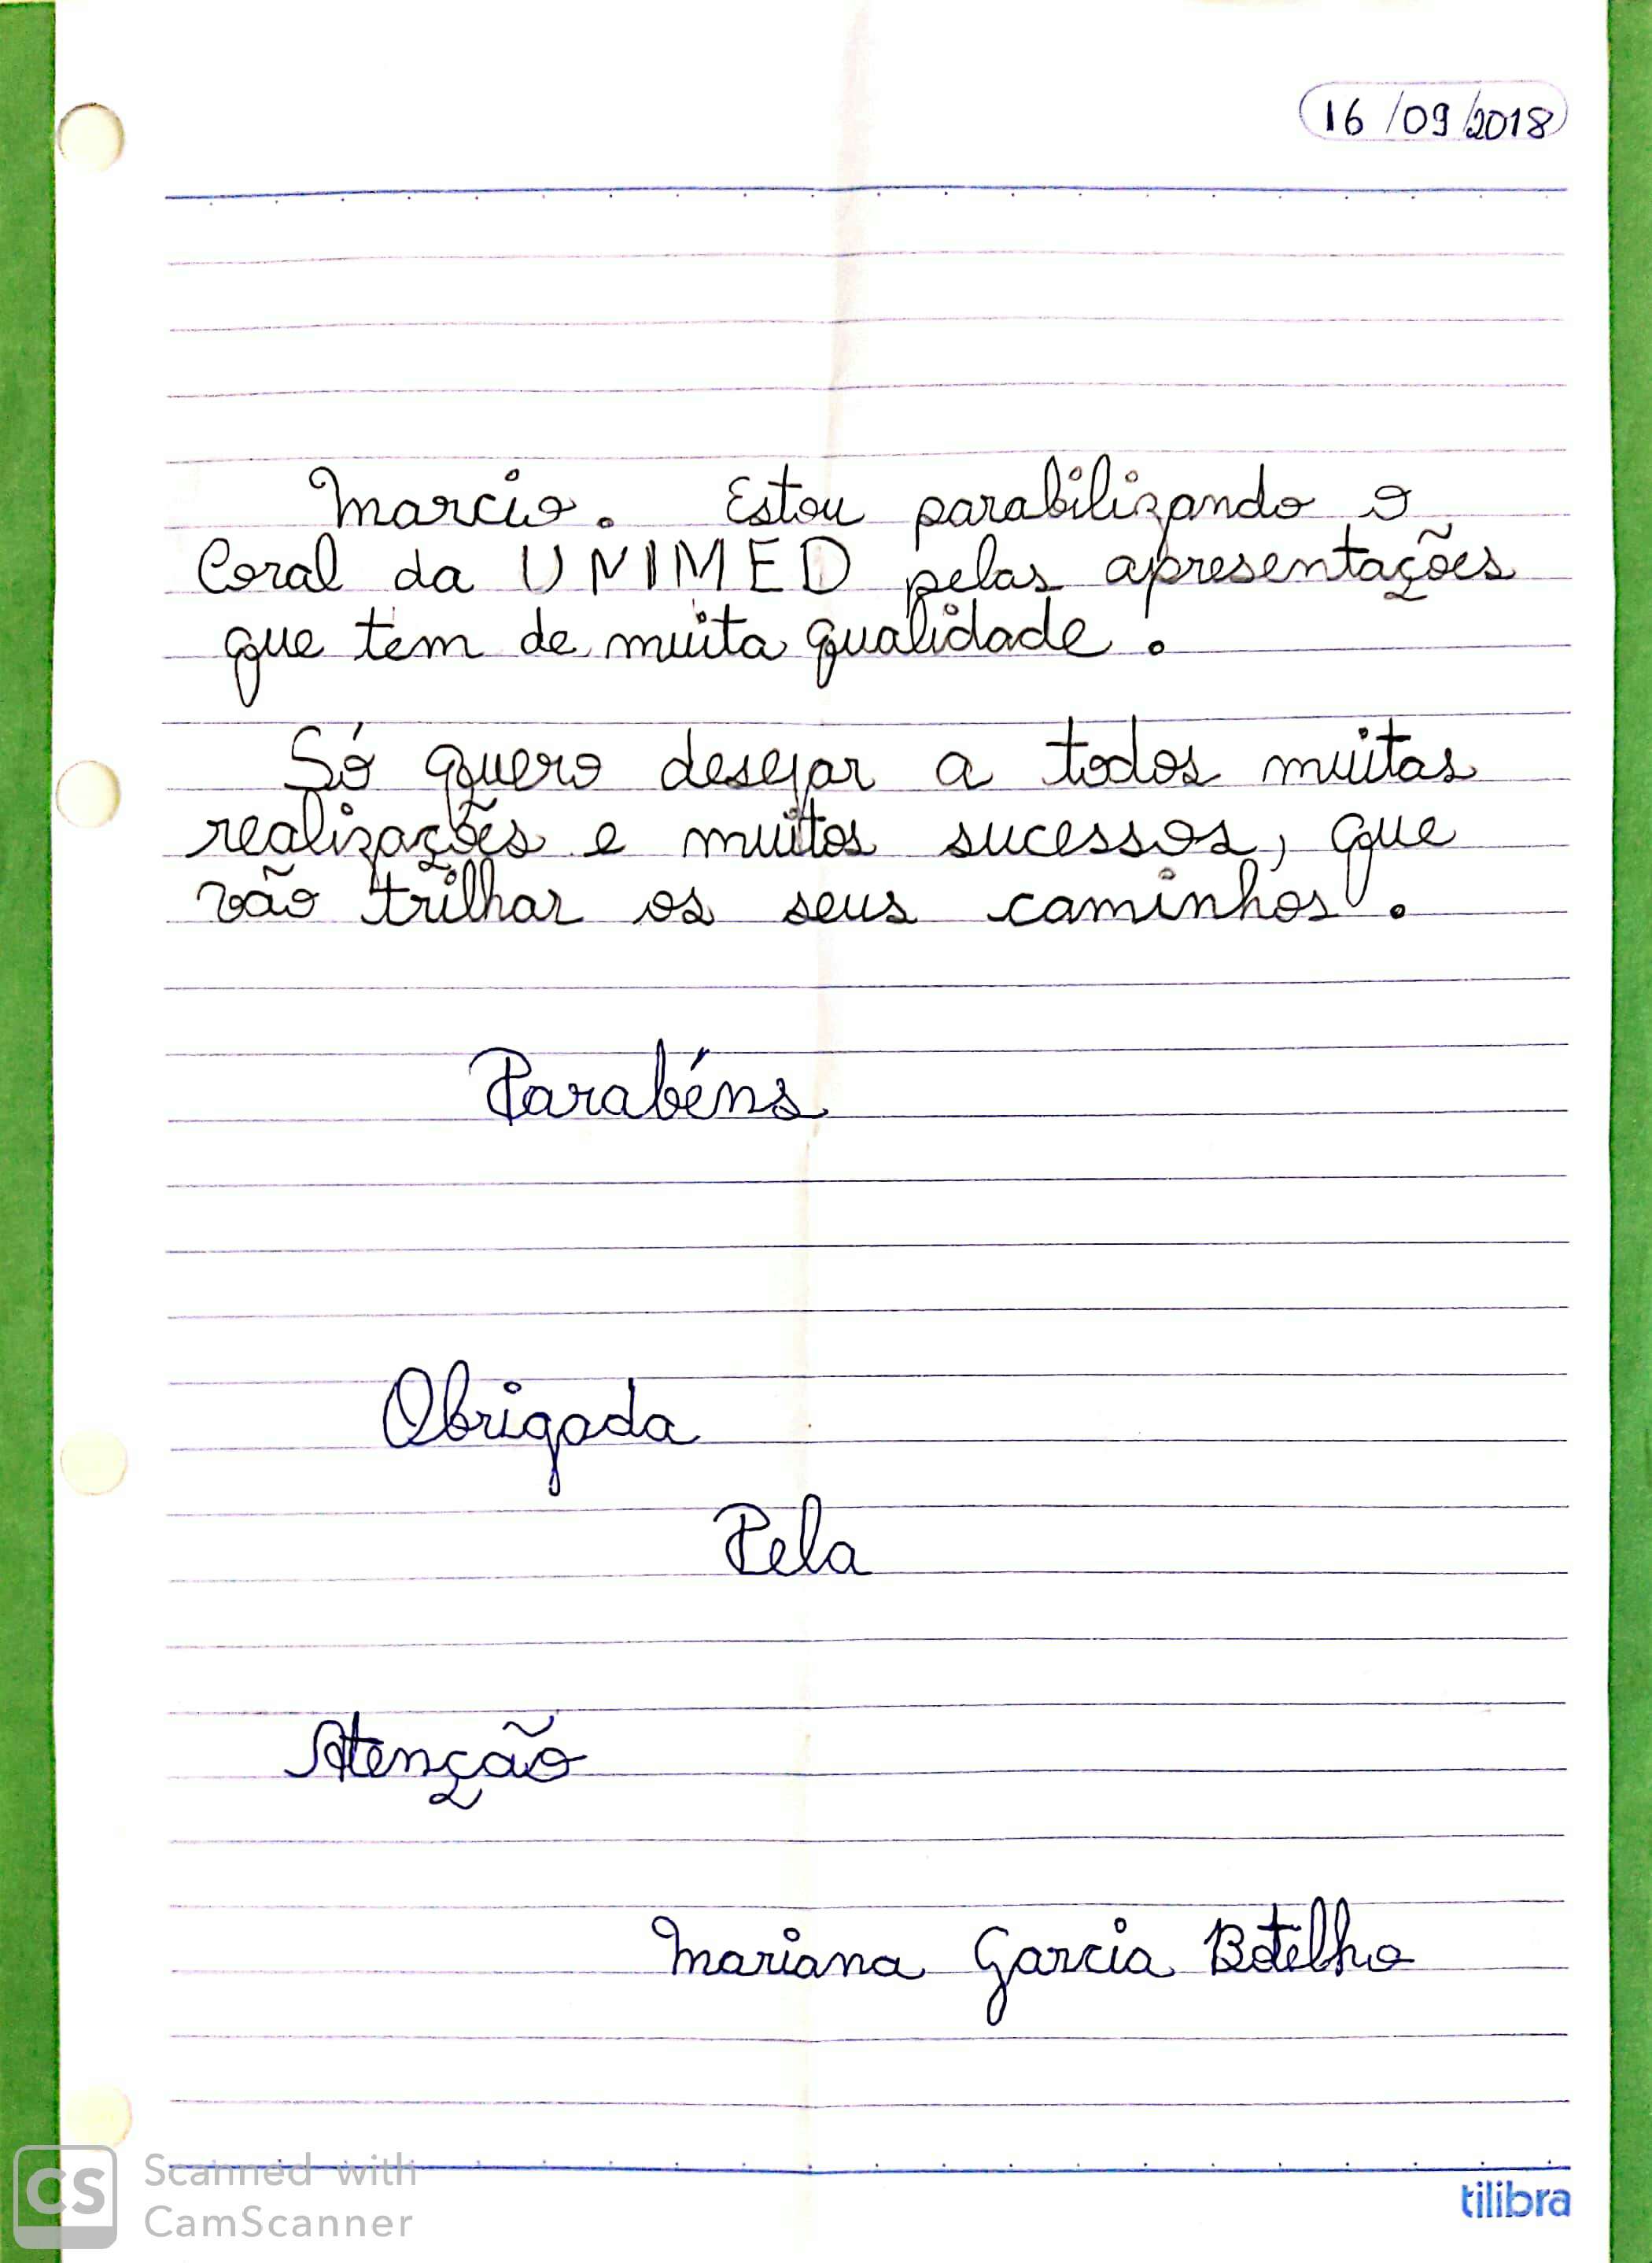 16/09/2018
Marcio. Estou parabilizando o
Coral da UNIMED pelas apresentações
que tem de muita qualidade.
Só quero desejar a todos muitas
realizações e muitos sucessos, que
vão trilhar os seus caminhos.
Parabéns
Obrigada
Pela
Atenção
Mariana Garcia Botelho
CS Scanned with
CamScanner
tilibra